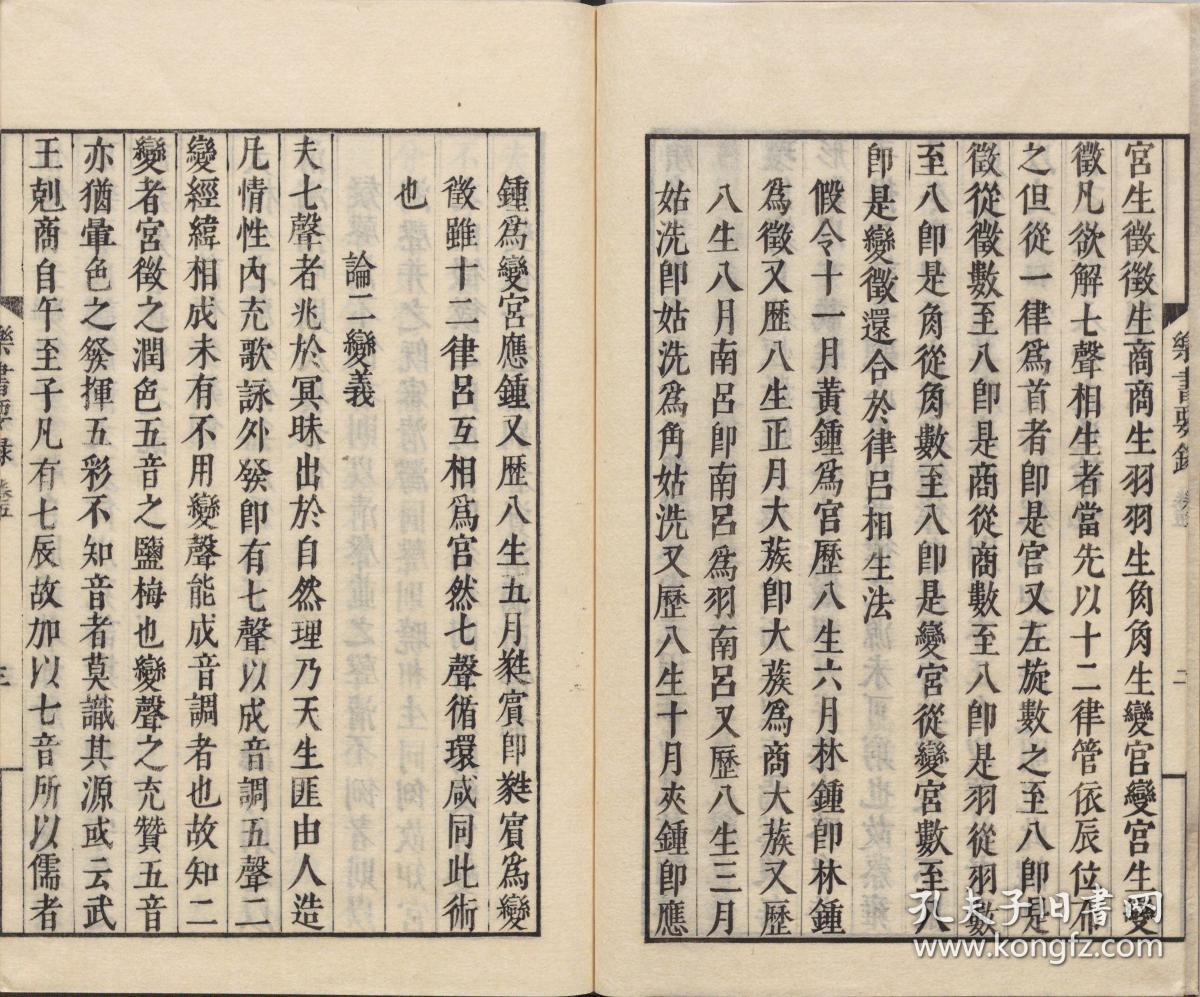 宮生徵徵生商商生羽羽生角角生變宮變宮生變
徵凡欲解七聲相生者當先以十二律管依辰位布
之但從一律爲首者卽是宮又左旋數之至八卽是
徵從徵數至八卽是商從商數至八卽是羽從羽數
至八卽是角從角數至八卽是變宮從變宮數至八
卽是變徵還合於律呂相生法
假令十一月黃鍾爲宮歷八生六月林鍾卽林鍾
爲徵又歷八生正月大蔟卽大蔟爲商大蔟又歷
八生八月南呂卽南呂爲羽南呂又歷八生三月
姑洗卽姑洗爲角姑洗又歷八生十月夾鍾卽應
樂書要錄 卷五 二
鍾爲變宮應鍾又歷八生五月蕤賓卽蕤賓爲變
徵雖十二律呂互相爲宮然七聲循環咸同此術
也
論二變義
夫七聲者兆於冥昧出於自然理乃天生匪由人造
凡情性內充歌詠外發卽有七聲以成音調五聲二
變經緯相成未有不用變聲能成音調者也故知二
變者宮徵之潤色五音之鹽梅也變聲之充贊五音
亦猶暈色之發揮五彩不知音者莫識其源或云武
王剋商自午至子凡有七辰故加以七音所以儒者
樂書要錄 卷五 三
孔夫子旧书网
www.kongfz.com